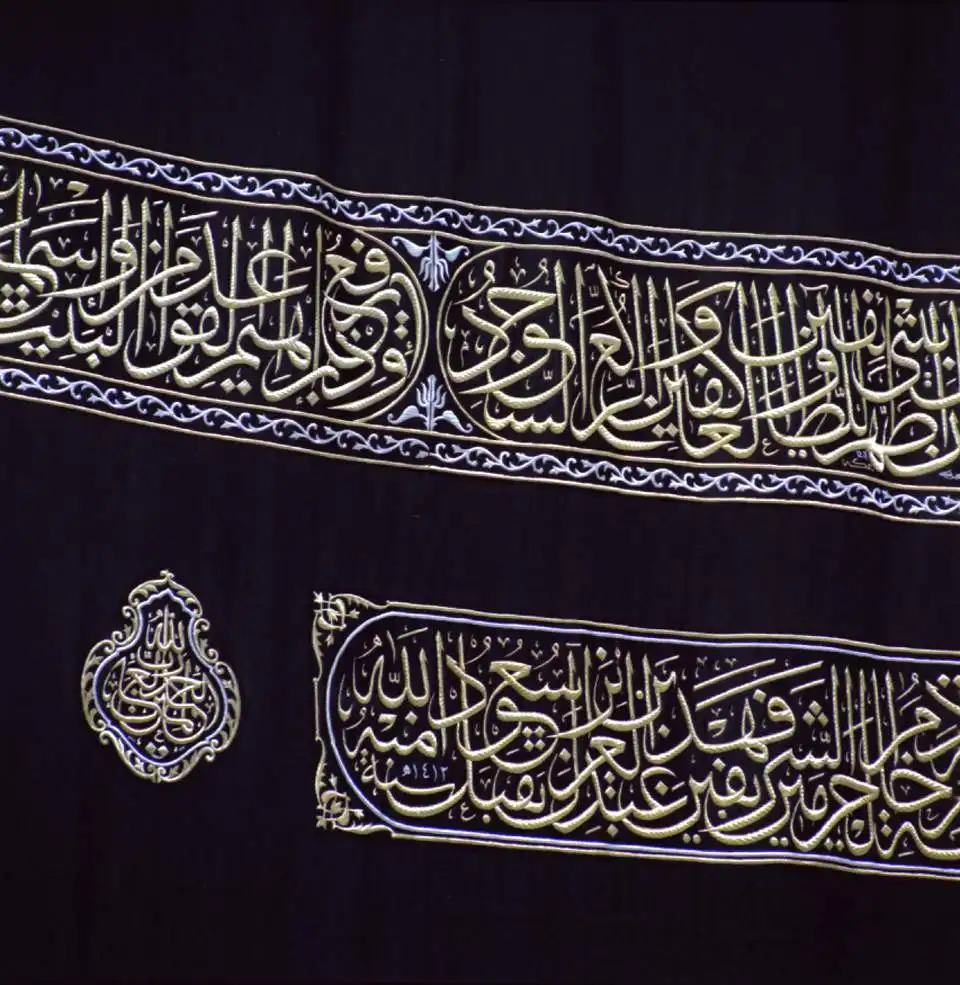 طهرا بيتي للطآئفين والعاكفين والركع السجود
وإذ يرفع إبراهيم القواعد من البيت وإسماعيل
الحمد لله رب العالمين
خادم الحرمين الشريفين فهد بن عبد العزيز ال سعود تقبل الله منه سنة ١٤١٢هـ